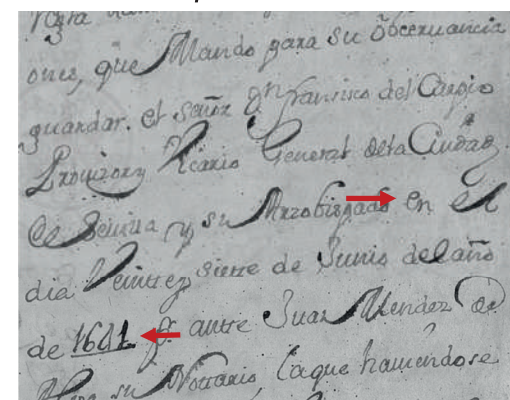 ones, que Mando para su obceruancia
guardar. el señor Dn fransisco del Campo
Prouizor y Vicario General de la Ciudad
de Seuilla y su Arzobispado en el
dia Veinte y siette de Junio del año
de 1641 pr. antte Juan Mendez de
su Nottario, la que hauiendose